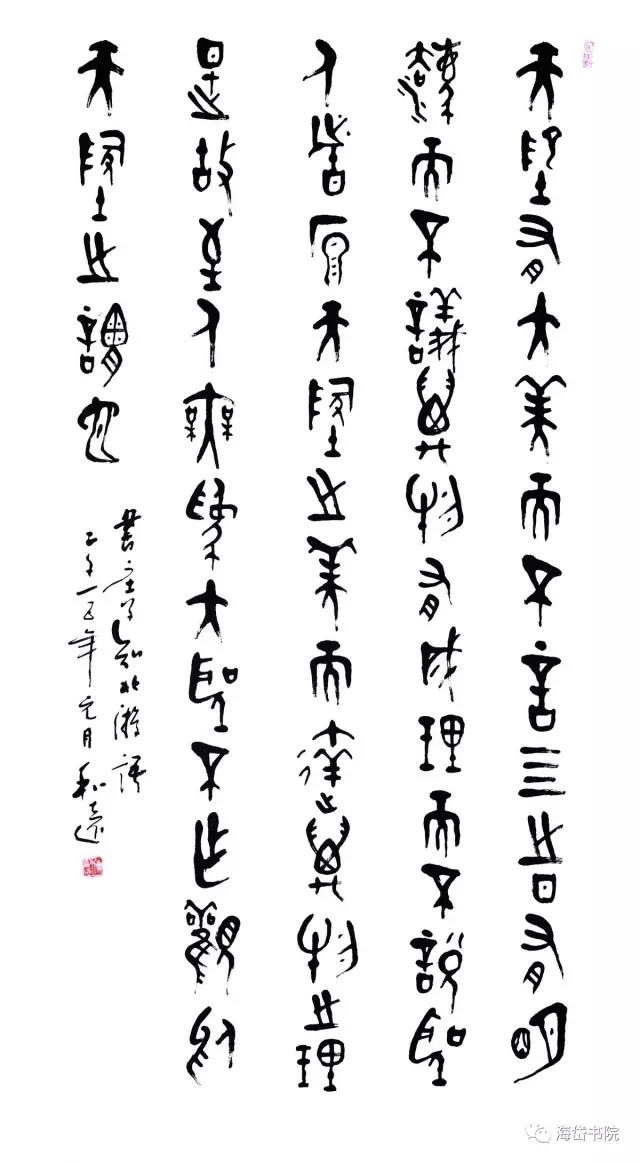 天地有大美而不言四時有明
灋而不議萬物有成理而不說聖
人者原天地之美而達萬物之理
是故至人無為大聖不作觀於
天地之謂也
書莊子知北游語
二千一五年元月和遠
海岱书院